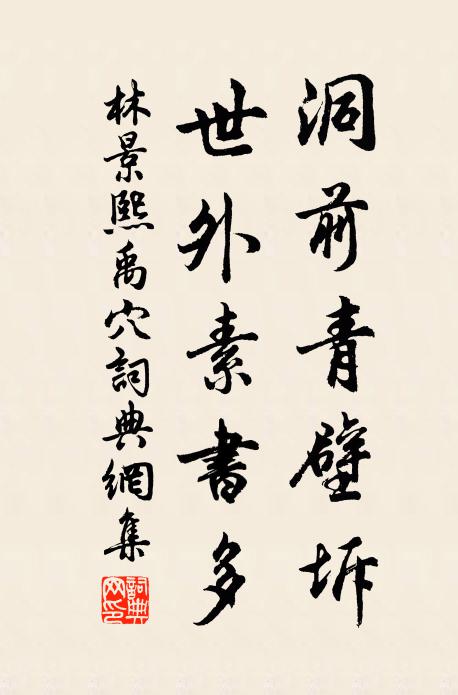 洞前青壁坼
世外素書多
林景熙禹穴詞典網集
詞典網印